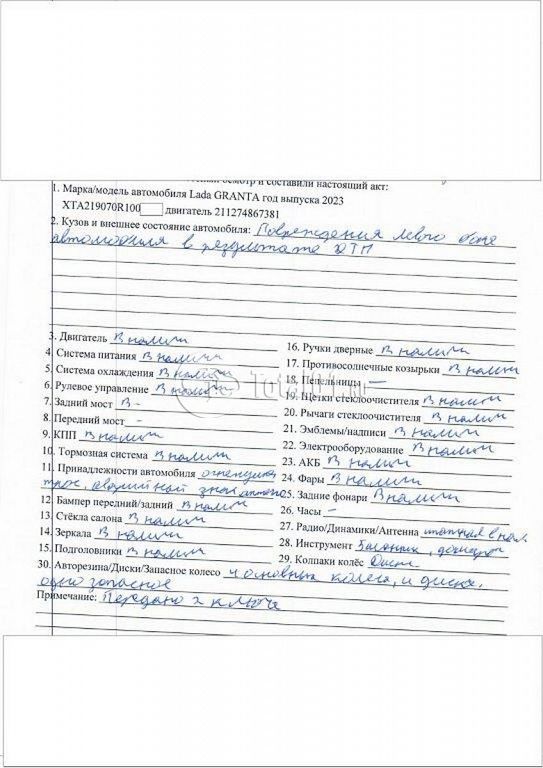 осмотр и составили настоящий акт:
1. Марка/модель автомобиля Lada GRANTA год выпуска 2023
XTA219070R100 двигатель 211274867381
2. Кузов и внешнее состояние автомобиля: Повреждения левого бока
автомобиля в результате ДТП
3. Двигатель В наличии
4. Система питания В наличии
5. Система охлаждения В наличии
6. Рулевое управление В наличии
7. Задний мост В -
8. Передний мост -
9. КПП В наличии
10. Тормозная система В наличии
11. Принадлежности автомобиля
трос, аварийный знак
12. Бампер передний/задний В наличии
13. Стёкла салона В наличии
14. Зеркала В наличии
15. Подголовники В наличии
16. Ручки дверные В наличии
17. Противосолнечные козырьки В наличии
18. Пепельницы —
19. Щетки стеклоочистителя В наличии
20. Рычаги стеклоочистителя В наличии
21. Эмблемы/надписи В наличии
22. Электрооборудование В наличии
23. АКБ В наличии
24. Фары В наличии
25. Задние фонари В наличии
26. Часы —
27. Радио/Динамики/Антенна штатная в нал.
28. Инструмент Балонник, домкрат
29. Колпаки колёс
30. Авторезина/Диски/Запасное колесо 4 основных колеса, и диска,
одно запасное
Примечание: Передано 2 ключа